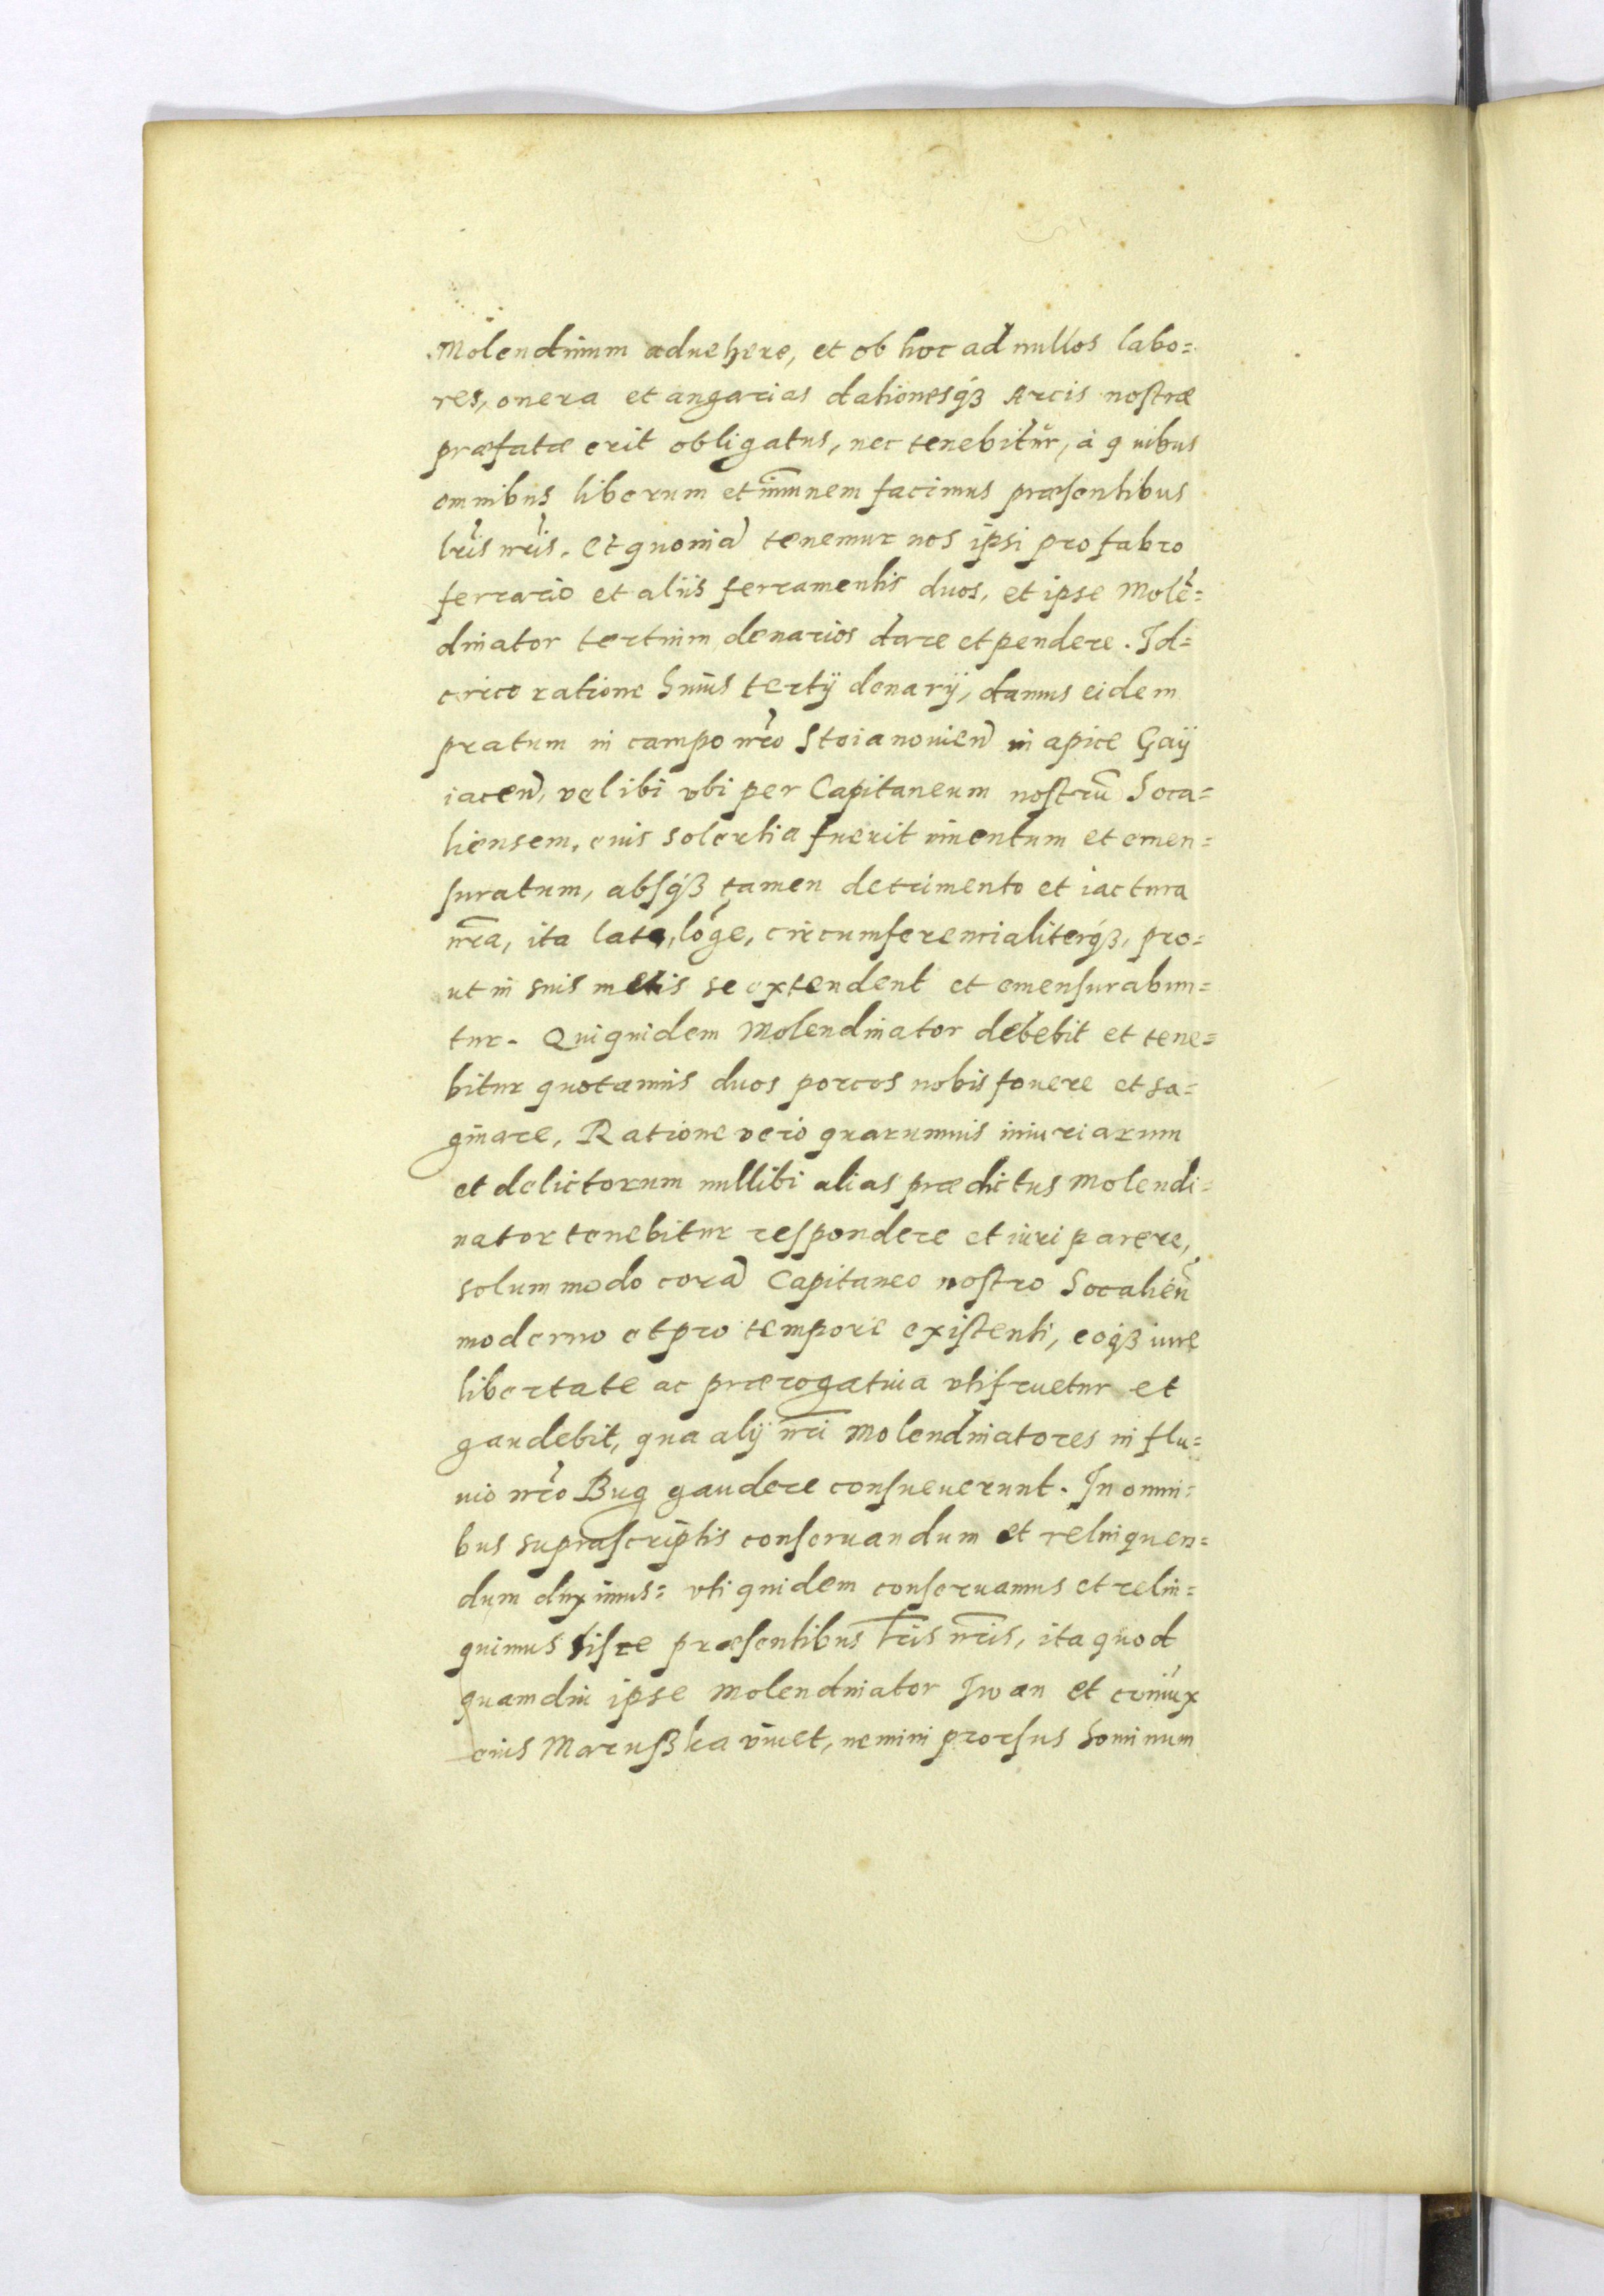 Molendinum aduehere, et ob hoc ad nullos labo=
res, onera et angarias dationesqȝ Arcis nostræ
præfatæ erit obligatus, nec tenebitur, à quibus
omnibus liberum et im̅unem facimus præsentibus
l̅ris n̅ris. Et quoniã tenemur nos ipsi pro fabro
ferrario et aliis ferramentis duos, et ipse Molẽ=
dinator tertium denarios dare et pendere. Id=
circo ratione huius tertij denarij, damus eidem
pratum in campo n̅ro Stoianouien̅ in apice Gaij
iacen̅, vel ibi vbi per Capitaneum nostrũ Soca=
liensem, eius solertia fuerit inuentum et emen=
suratum, absqȝ tamen detrimento et iactura
n̅ra, ita late, lõge, circumferencialiterqȝ, pro=
ut in suis metis se extendent et emensurabun=
tur. Qui quidem Molendinator debebit et tene=
bitur quotannis duos porcos nobis fouere et sa=
ginare, Ratione vero quarumuis iniuriarum
et delictorum nullibi alias prædictus Molendi=
nator tenebitur respondere et iuri parere,
solummodo corã Capitaneo nostro Socalien̅
moderno et pro tempore existenti, eoqȝ iure
libertate ac prærogatiua vtifruetur et
gaudebit, qua alij n̅ri Molendinatores in flu=
uio n̅ro Bug gaudere consueuerunt. In omni=
bus suprascriptis conseruandum et relinquen=
dum duximus: vti quidem conseruamus et relin=
quimus hisce præsentibus l̅ris n̅ris, ita quod
quamdiu ipse Molendinator Iwan et coniux
eius Marußka viuet, nemini prorsus hominum